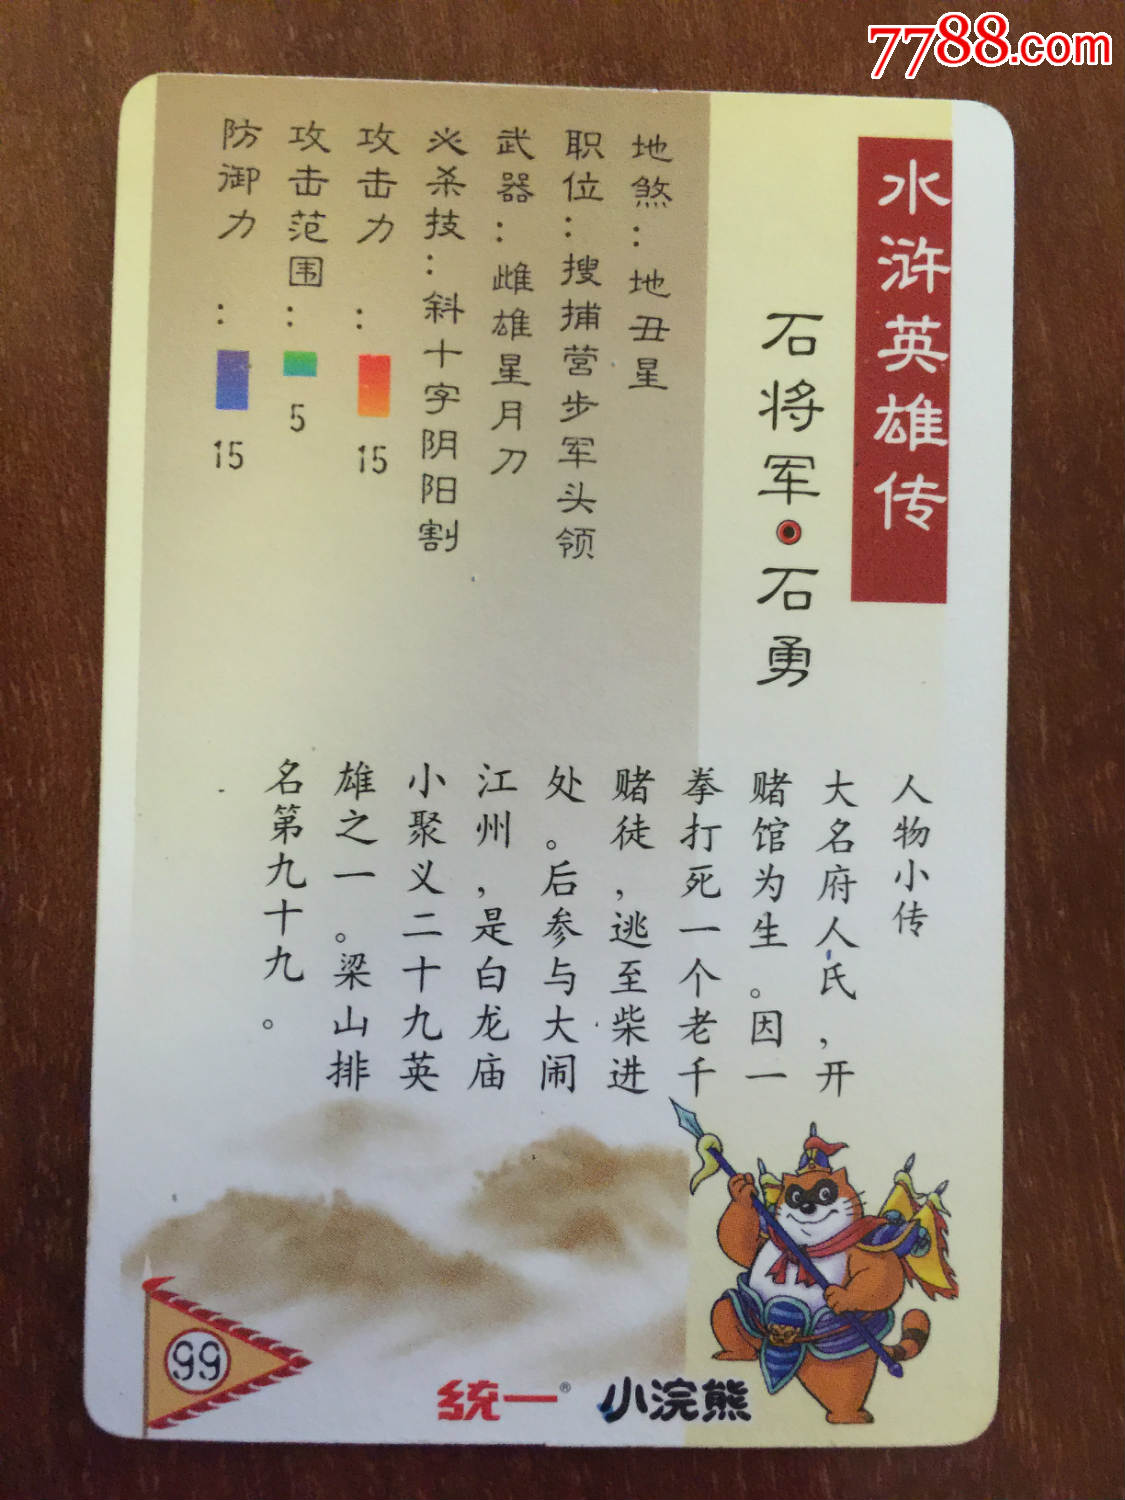 7788.com
水浒英雄传
石将军·石勇
地煞：地丑星
职位：搜捕营步军头领
武器：雌雄星月刀
必杀技：斜十字阴阳割
攻击力：15
攻击范围：5
防御力：15
人物小传
大名府人氏，开
赌馆为生。因一
拳打死一个老千
赌徒，逃至柴进
处。后参与大闹
江州，是白龙庙
小聚义二十九英
雄之一。梁山排
名第九十九。
99
统一®
小浣熊